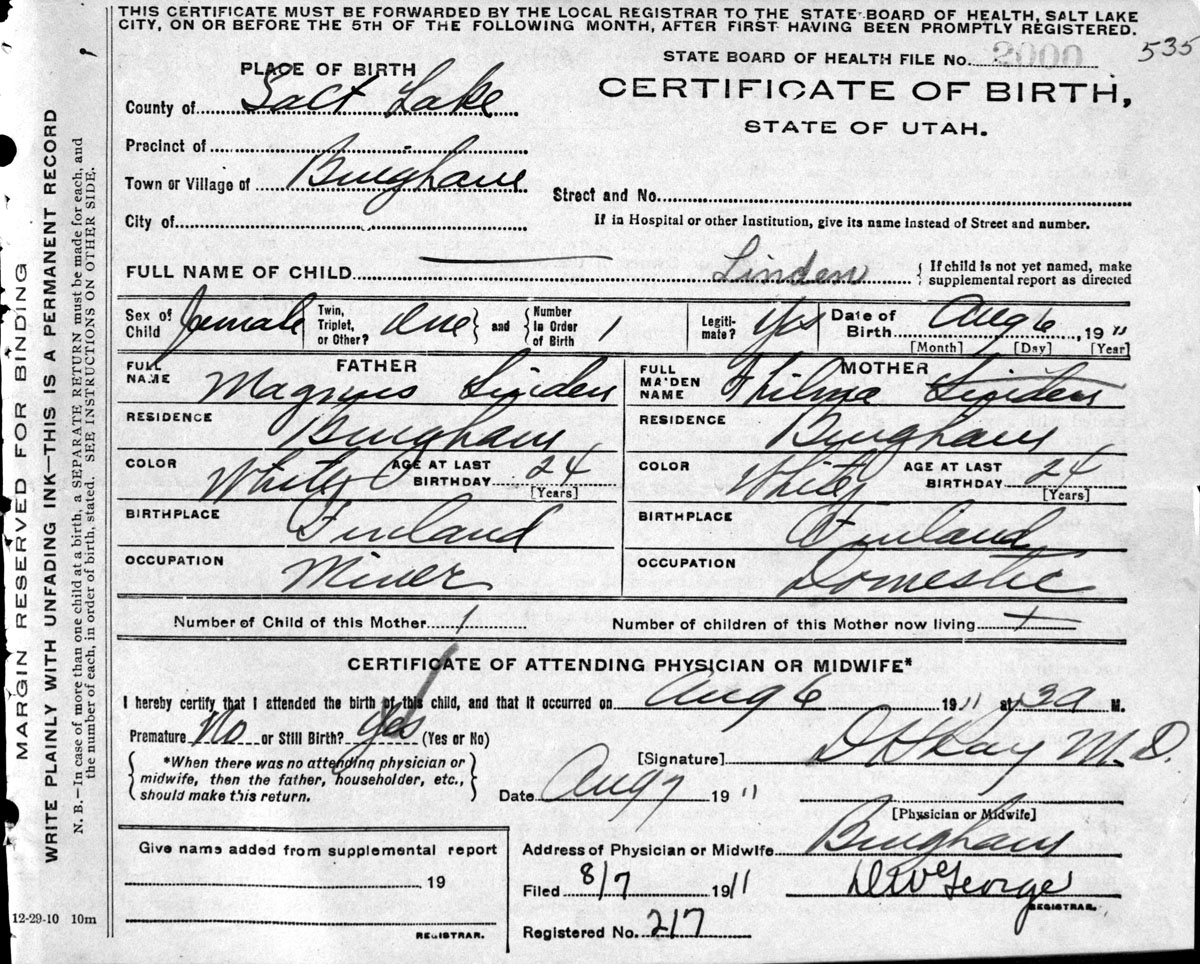 THIS CERTIFICATE MUST BE FORWARDED BY THE LOCAL REGISTRAR TO THE STATE BOARD OF HEALTH, SALT LAKE
CITY, ON OR BEFORE THE 5TH OF THE FOLLOWING MONTH, AFTER FIRST HAVING BEEN PROMPTLY REGISTERED.
535
STATE BOARD OF HEALTH FILE No. 2000
PLACE OF BIRTH
CERTIFICATE OF BIRTH,
STATE OF UTAH.
County of Salt Lake
Precinct of
Town or Village of Bingham
Street and No.
City of
If in Hospital or other Institution, give its name instead of Street and number.
FULL NAME OF CHILD Linden { If child is not yet named, make
supplemental report as directed
Sex of Child female Twin, Triplet, or Other? one } and { Number in Order of Birth 1 Legiti-mate? Yes Date of Birth Aug 6, 1911
[Month] [Day] [Year]
FATHER
MOTHER
FULL NAME Magnus Linden
FULL MAIDEN NAME Thilma Linden
RESIDENCE Bingham
RESIDENCE Bingham
COLOR White AGE AT LAST BIRTHDAY 24 [Years]
COLOR White AGE AT LAST BIRTHDAY 24 [Years]
BIRTHPLACE Finland
BIRTHPLACE Finland
OCCUPATION Miner
OCCUPATION Domestic
Number of Child of this Mother 1
Number of children of this Mother now living
CERTIFICATE OF ATTENDING PHYSICIAN OR MIDWIFE*
I hereby certify that I attended the birth of this child, and that it occurred on Aug 6 1911 at 3 a M.
Premature No or Still Birth? Yes (Yes or No)
{ *When there was no attending physician or
midwife, then the father, householder, etc.,
should make this return. }
[Signature] D H Ray M.D.
Date Aug 7 1911
[Physician or Midwife]
Address of Physician or Midwife Bingham
Filed 8/7 1911
REGISTRAR.
Registered No. 217
Give name added from supplemental report
19
REGISTRAR.
MARGIN RESERVED FOR BINDING
WRITE PLAINLY WITH UNFADING INK—THIS IS A PERMANENT RECORD
N. B.—In case of more than one child at a birth, a SEPARATE RETURN must be made for each, and
the number of each, in order of birth, stated. SEE INSTRUCTIONS ON OTHER SIDE.
12-29-10 10m